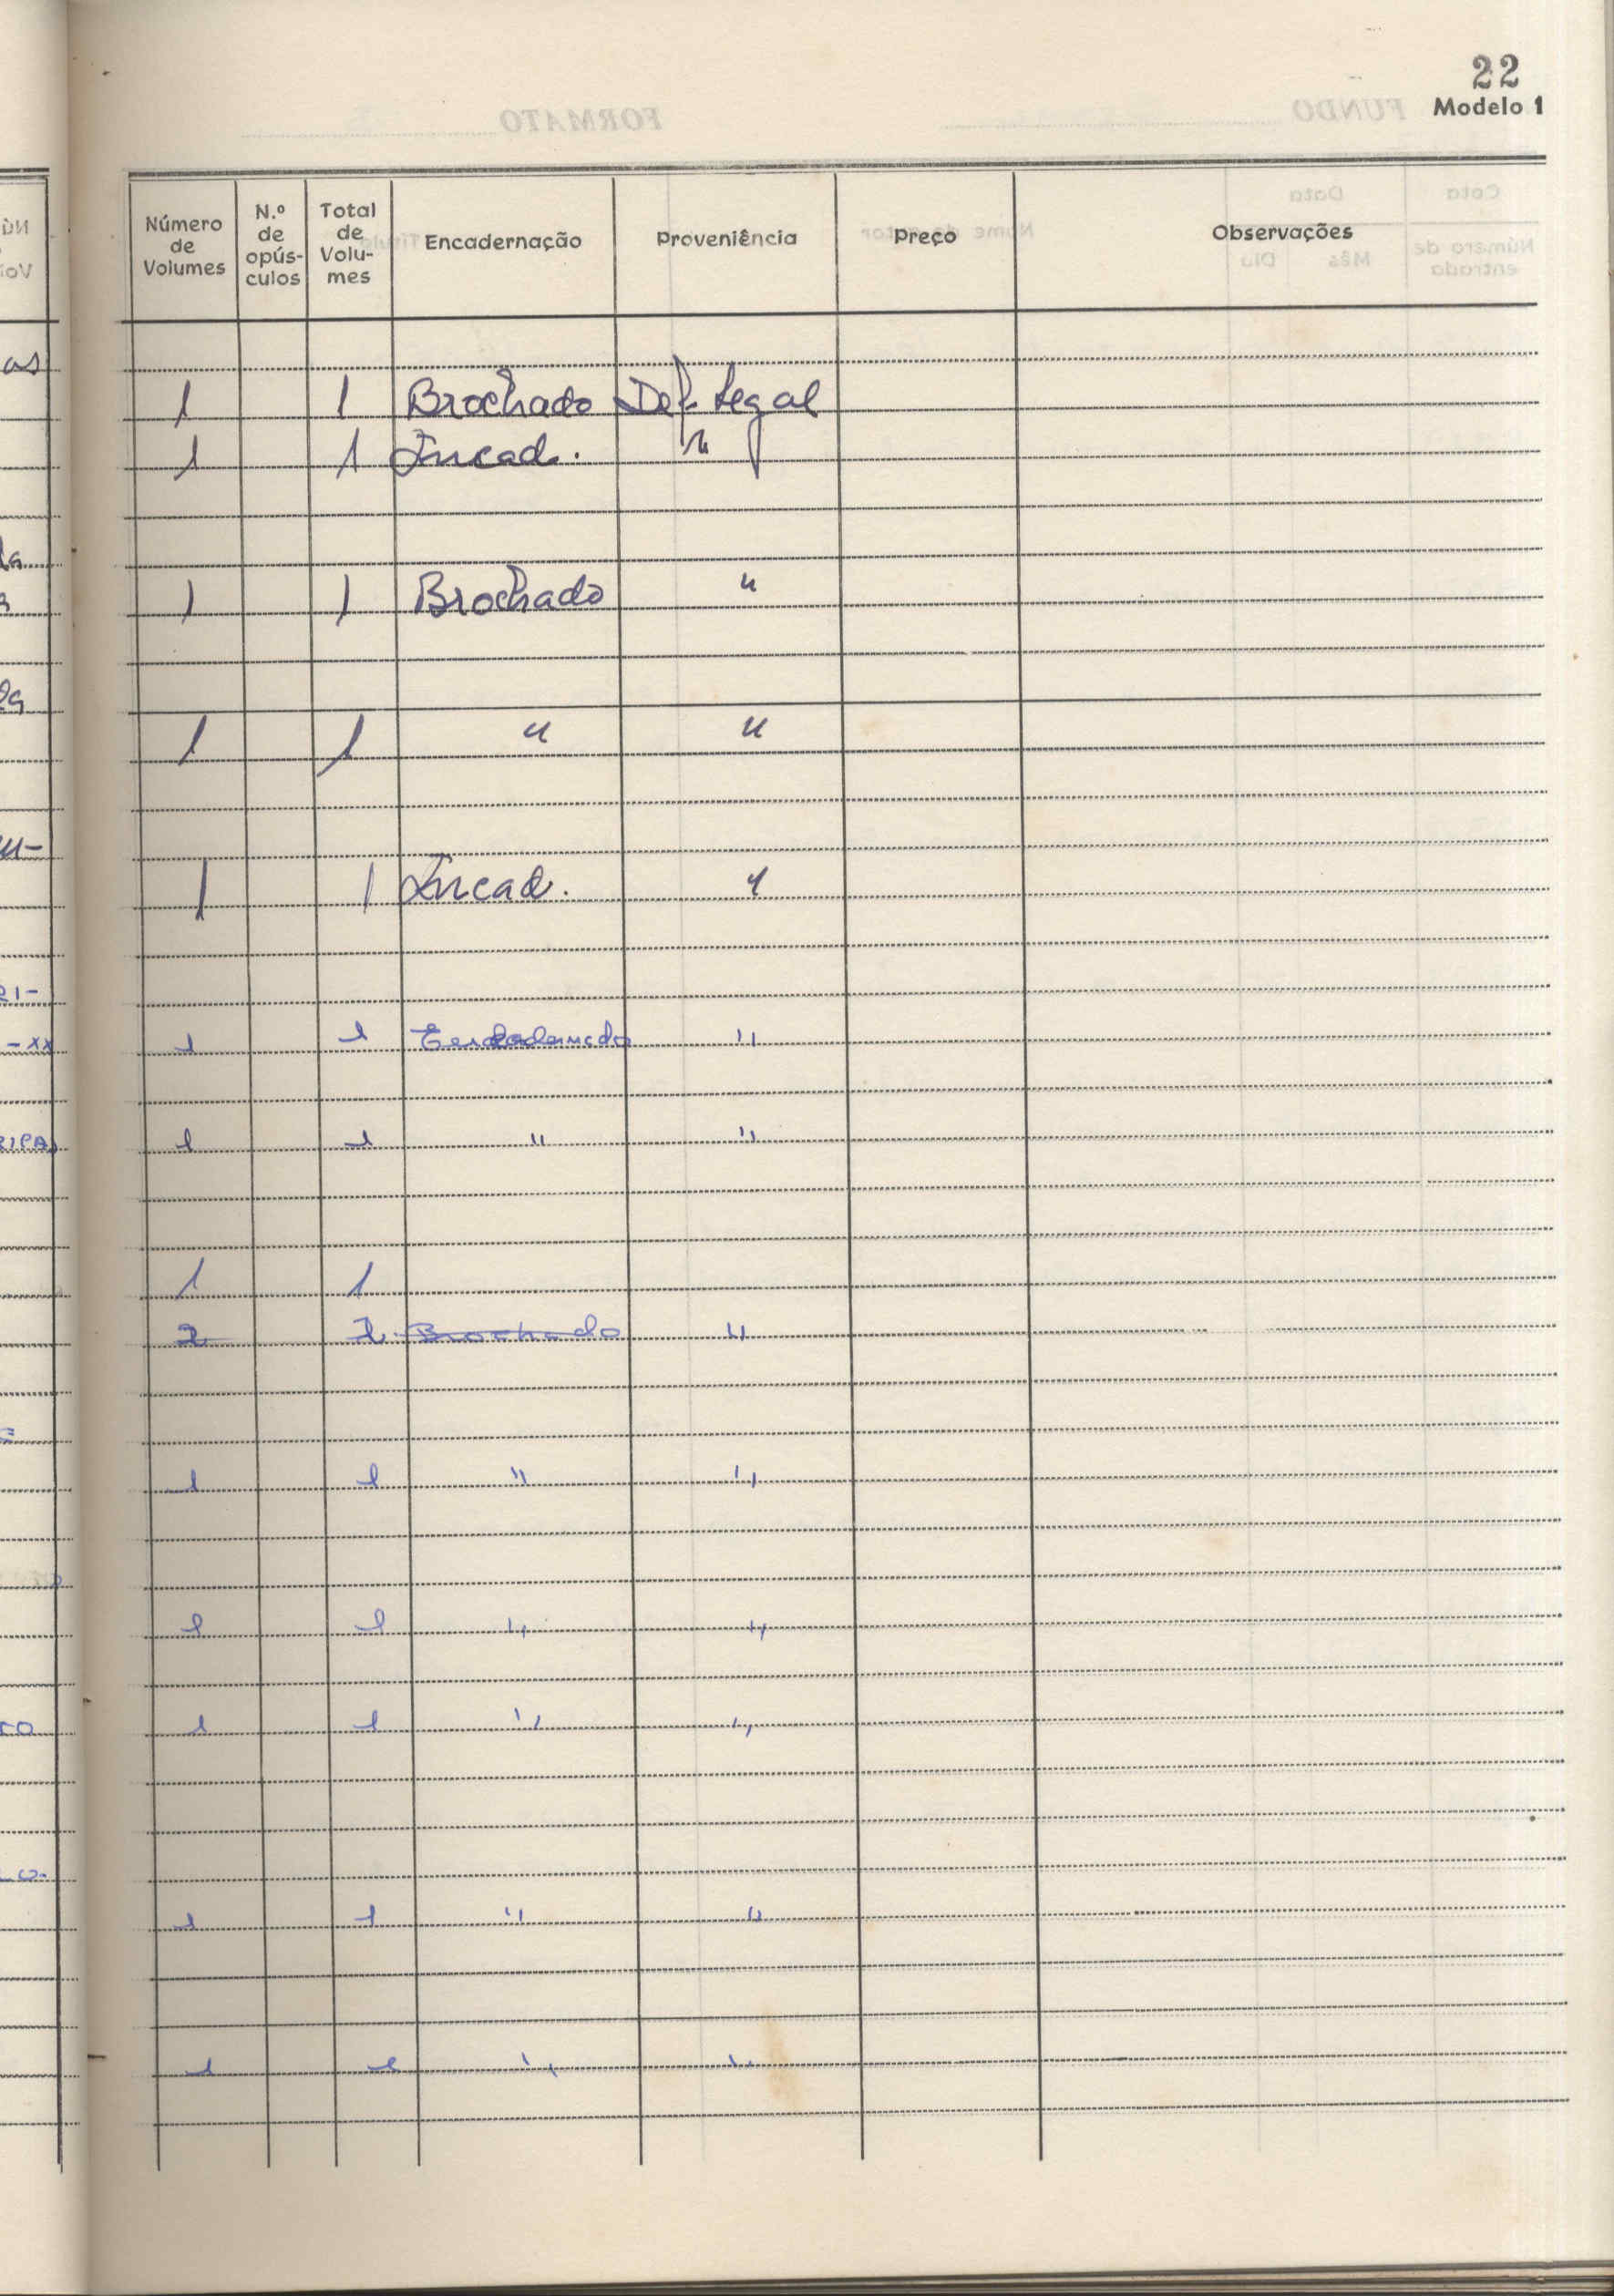 22
Modelo 1
Número de Volumes | N.º de opús-culos | Total de Volu-mes | Encadernação | Proveniência | Preço | Observações
1 1 Brochado Dep. Legal
1 1 Encad. "
1 1 Brochado "
1 1 " "
1 1 Encad. "
1 1 Encadernado "
1 1 " "
1 1
2 2 Brochado "
1 1 " "
1 1 " "
1 1 " "
1 1 " "
1 1 " "